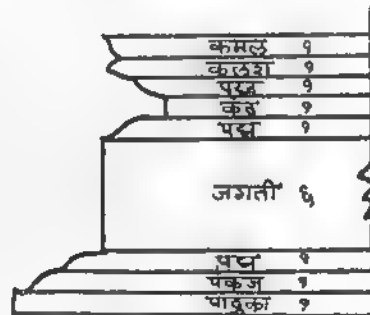 कमल १
कलश १
पद्म १
कंठ १
पद्म १
जगती ६
पद्म १
पंकज १
पादुका १